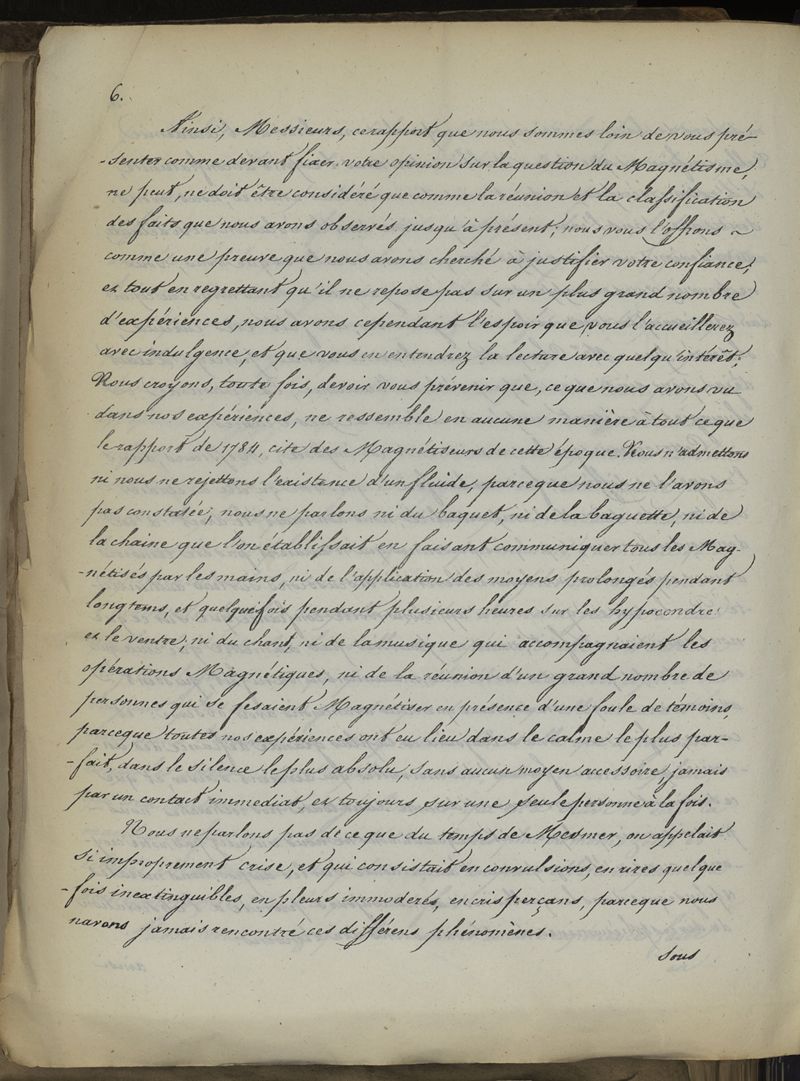 6.
Ainsi, Messieurs, ce rapport que nous sommes loin de vous pré-
-senter comme devant fixer votre opinion sur la question du Magnétisme,
ne peut, ne doit être considéré que comme la réunion et la classification
des faits que nous avons observés jusqu'à présent; nous vous l'offrons ~
comme une preuve que nous avons cherché à justifier votre confiance;
et tout en regrettant qu'il ne repose pas sur un plus grand nombre
d'expériences, nous avons cependant l'espoir que vous l'accueillerez
avec indulgence, et que vous en entendrez la lecture avec quelqu'intérêt;
Nous croyons, toute fois, devoir vous prévenir que, ce que nous avons vu
dans nos expériences, ne ressemble en aucune manière à tout ce que
le rapport de 1784, cite des Magnétiseurs de cette époque. Nous n'admettons
ni nous ne rejettons l'existence d'un fluide, parceque nous ne l'avons
pas constatée; nous ne parlons ni du baquet, ni de la baguette, ni de
la chaine que l'on établissait en faisant communiquer tous les Mag-
-nétisés par les mains, ni de l'application des moyens prolongés pendant
longtems, et quelquefois pendant plusieurs heures sur les hypocondre
et le ventre, ni du chant, ni de la musique qui accompagnaient les
opérations Magnétiques, ni de la réunion d'un grand nombre de
personnes qui se fesaient Magnétiser en présence d'une foule de témoins,
parceque toutes nos expériences ont eu lieu dans le calme le plus par-
-fait, dans le silence le plus absolu, sans aucun moyen accessoire, jamais
par un contact immediat, et toujours sur une seule personne à la fois.
Nous ne parlons pas de ce que du temps de Mesmer, on appelait
si improprement crise, et qui consistait en convulsions, en rires quelque
-fois inextinguibles, en pleurs immoderés, en cris perçans, parceque nous
navons jamais rencontré ces différens phénomènes.
sous